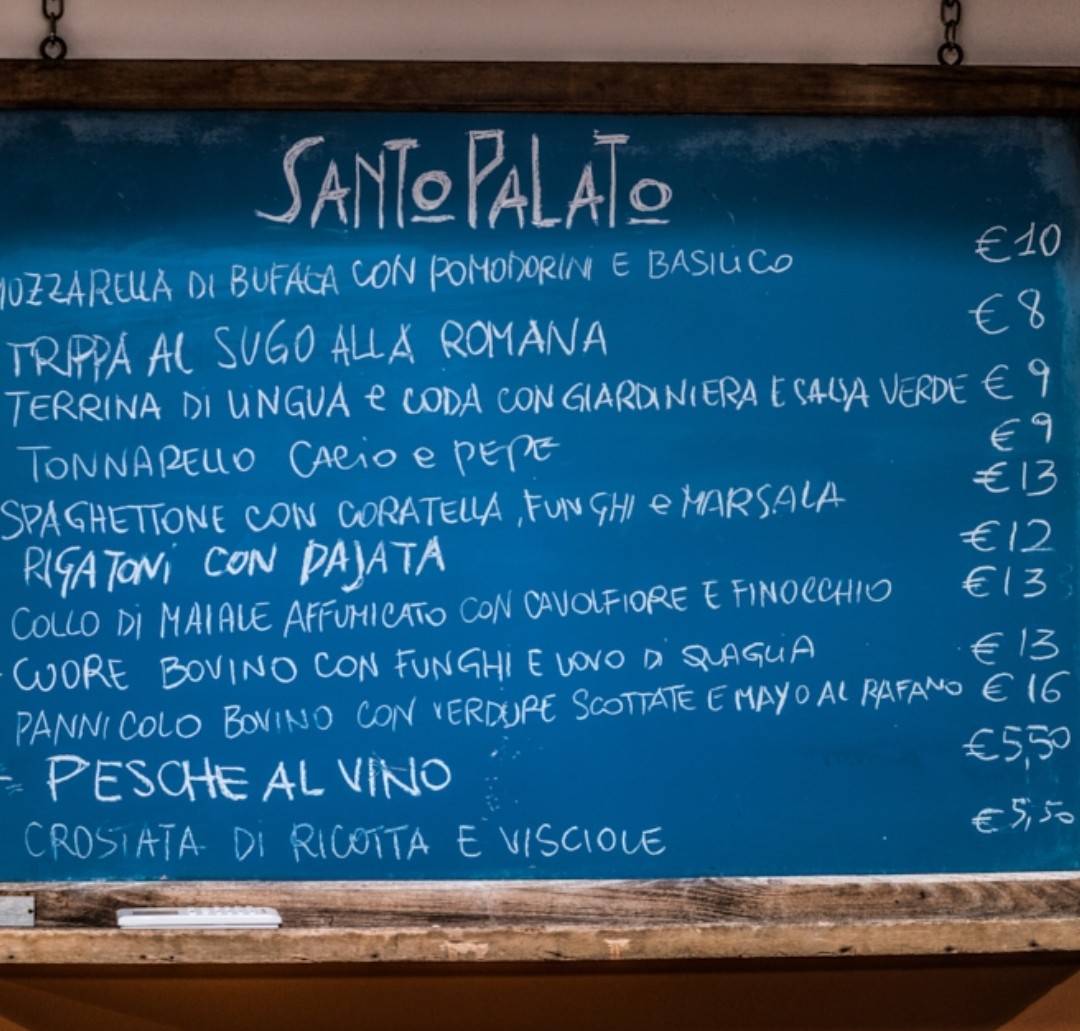 SANTO PALATO
MOZZARELLA DI BUFALA CON POMODORINI E BASILICO €10
TRIPPA AL SUGO ALLA ROMANA €8
TERRINA DI LINGUA e CODA CON GIARDINIERA E SALSA VERDE €9
TONNARELLO CACIO e PEPE €9
SPAGHETTONE CON CORATELLA, FUNGHI e MARSALA €13
RIGATONI CON PAJATA €12
COLLO DI MAIALE AFFUMICATO CON CAVOLFIORE E FINOCCHIO €13
CUORE BOVINO CON FUNGHI E UOVO DI QUAGLIA €13
PANNICOLO BOVINO CON VERDURE SCOTTATE E MAYO AL RAFANO €16
- PESCHE AL VINO €5,50
CROSTATA DI RICOTTA E VISCIOLE €5,50